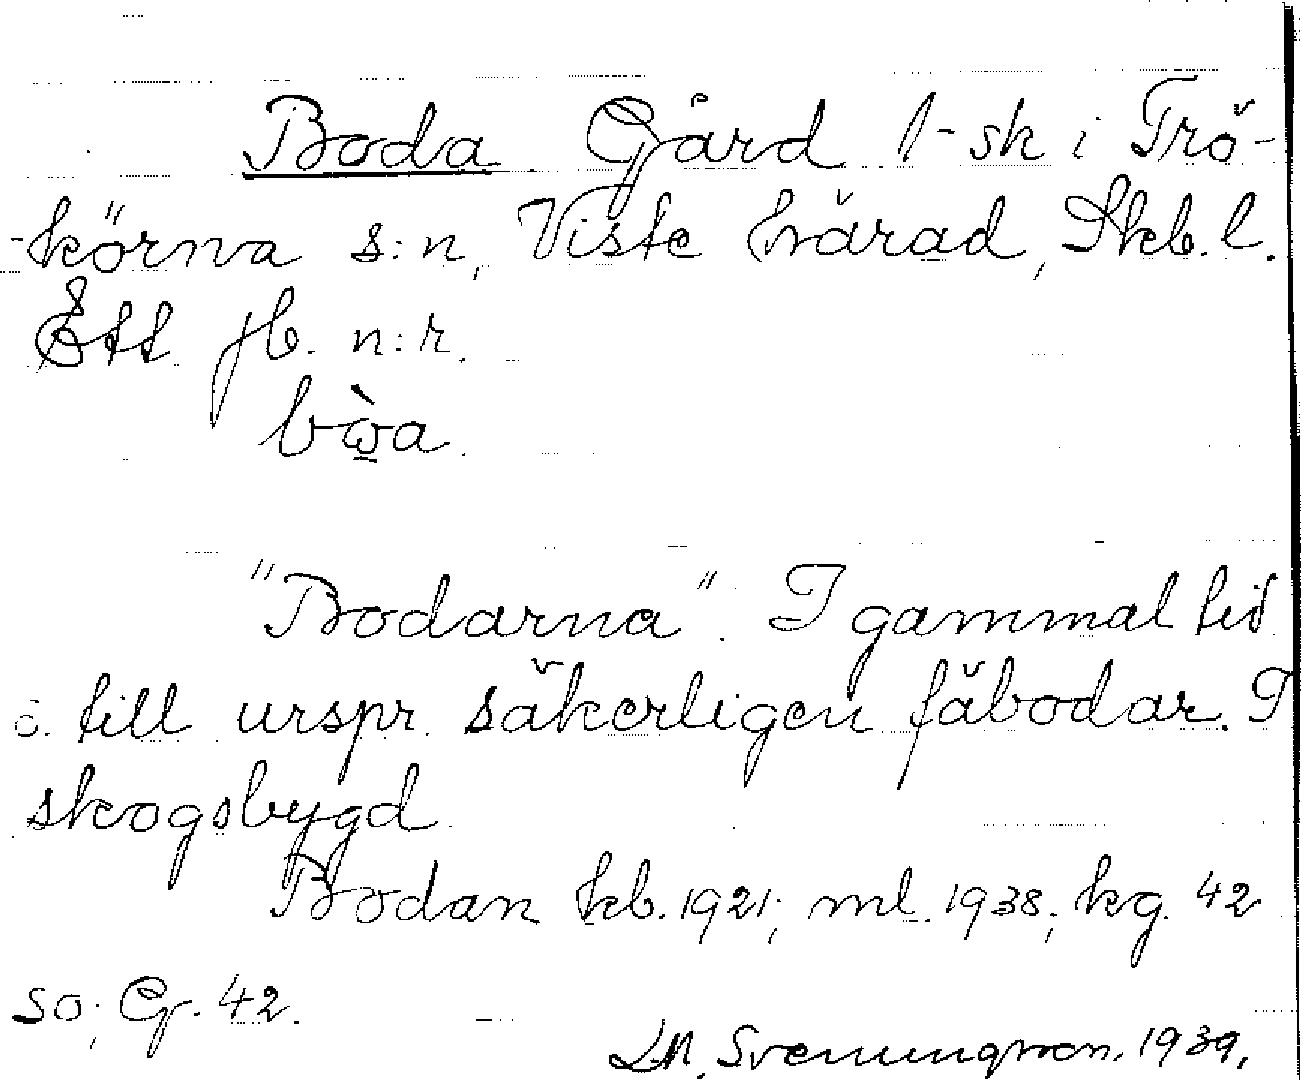 Boda Gård 1-sk i Trö-
-körna s:n, Viste härad, Skb. l.
Ett jb. n:r.
bὼ̱a.
"Bodarna". I gammal tid
o. till urspr. säkerligen fäbodar. I
skogsbygd.
Bodan kb. 1921; ml. 1938; kg. 42
so; Cg. 42.
LM. Svenungsson. 1939.